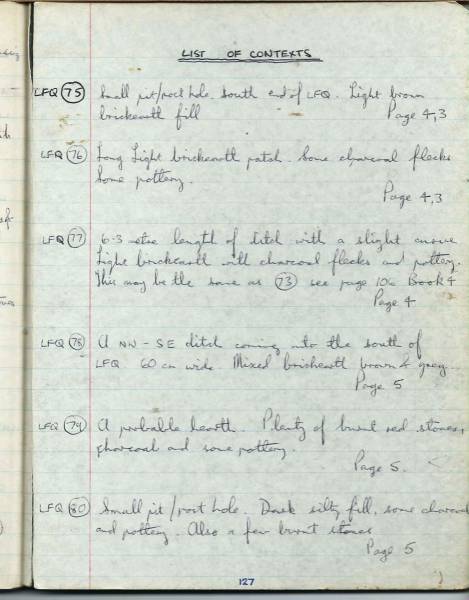 LIST OF CONTEXTS
LFQ 75 Small pit/post hole. South end of LFQ. Light brown
brickearth fill Page 4,3
LFQ 76 Long Light brickearth patch. Some charcoal flecks
Some pottery.
Page 4,3
LFQ 77 6.3 metre length of ditch with a slight curve
Light brickearth with charcoal flecks and pottery.
This may be the same as 73 see page 106 Book 4
Page 4
LFQ 78 A NW-SE ditch coming into the south of
LFQ 60 cm wide. Mixed brickearth brown & grey.
Page 5
LFQ 79 A probable hearth. Plenty of burnt red stones,
charcoal and some pottery.
Page 5.
LFQ 80 Small pit/post hole. Dark silty fill, some charcoal
and pottery. Also a few burnt stones
Page 5
127